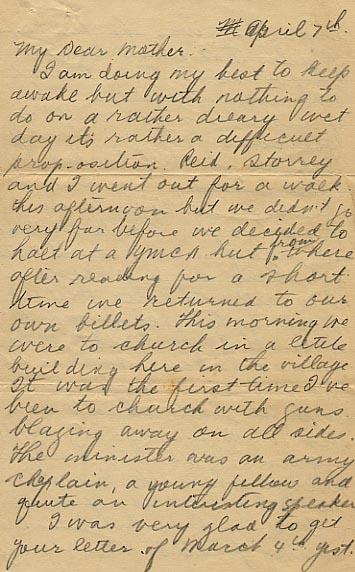 April 7th.
My Dear Mother.
I am doing my best to keep
awake but with nothing to
do on a rather dreary wet
day it's rather a difficult
proposition. Reid, Storrey
and I went out for a walk
this afternoon but we didn't go
very far before we decided to
halt at a YMCA hut from where
after reading for a short
time we returned to our
own billets. This morning we
were to church in a little
building here in the village
It was the first time I've
been to church with guns
blazing away on all sides.
The minister was an army
chaplain, a young fellow and
quite an interesting speaker
I was very glad to get
your letter of March 4th yest.